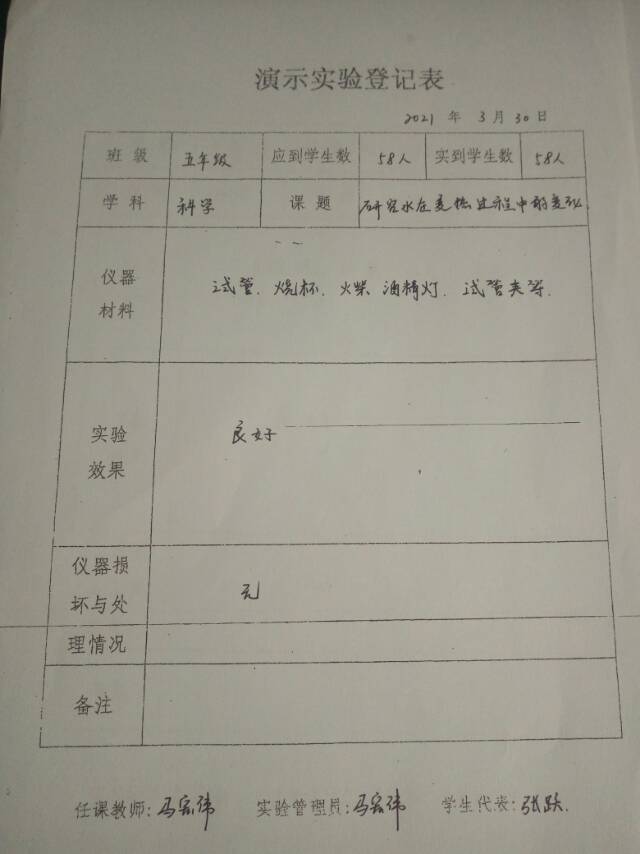 演示实验登记表
2021 年 3 月 30 日
班 级 五年级 应到学生数 58人 实到学生数 58人
学 科 科学 课 题 研究水在变热过程中的变化
仪器材料 试管. 烧杯. 火柴. 酒精灯. 试管夹等.
实验效果 良好
仪器损坏与处理情况 无
备注
任课教师: 马宏伟 实验管理员: 马宏伟 学生代表: 张跃.